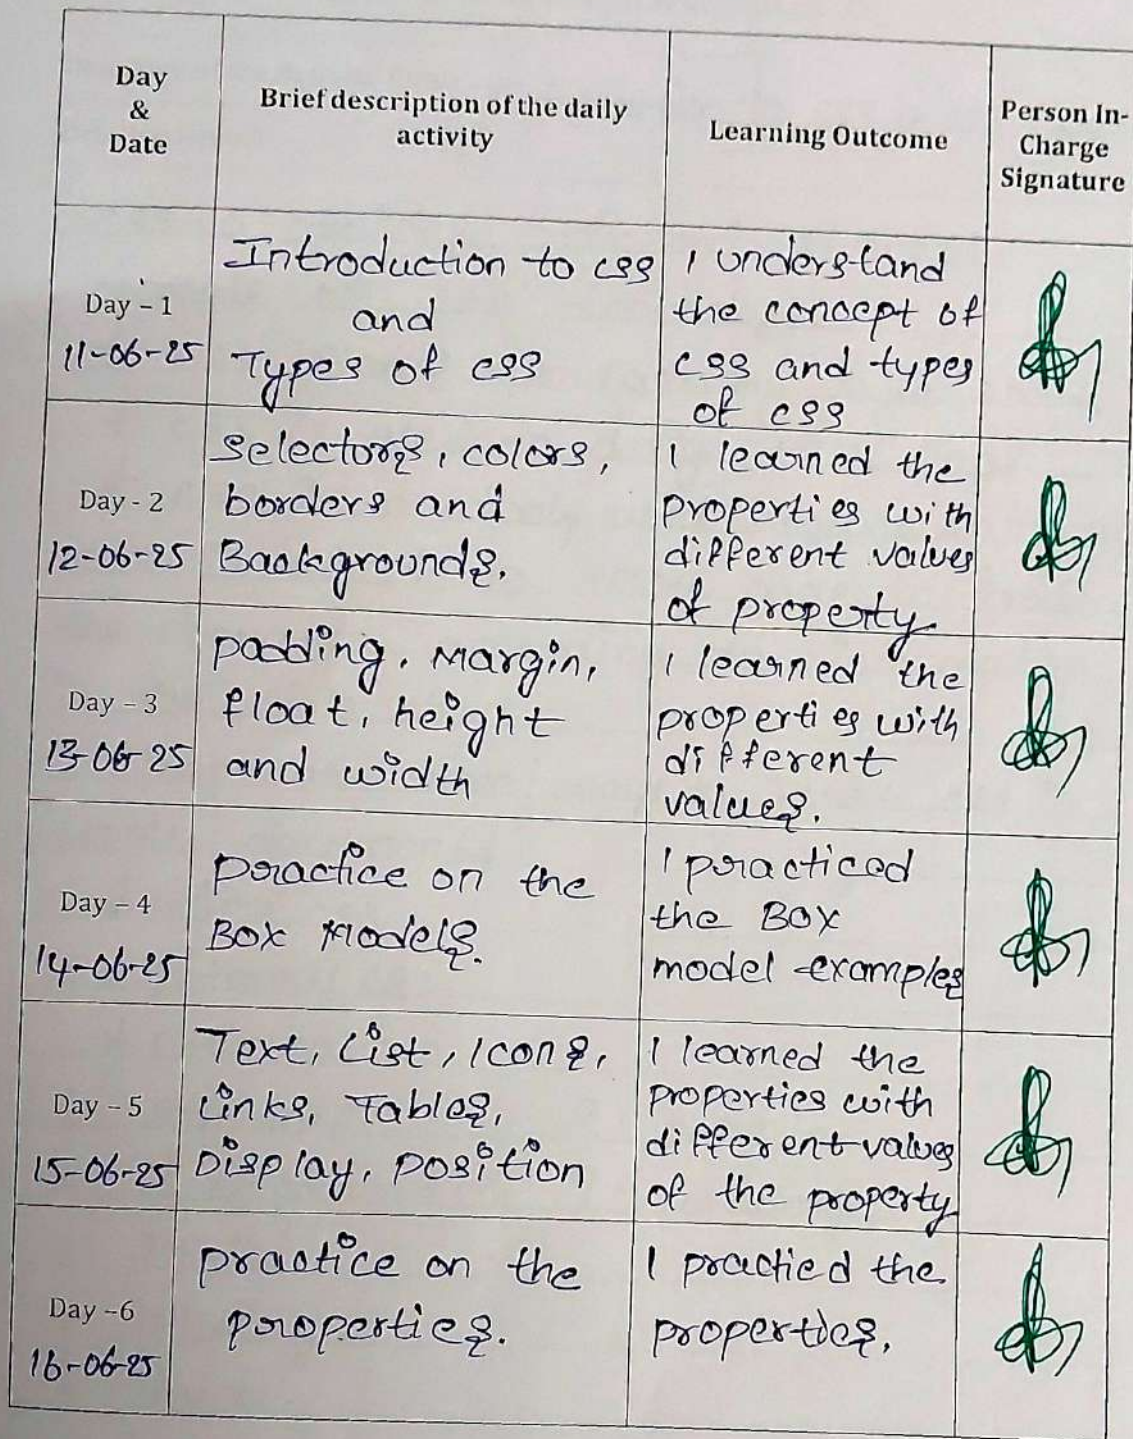 Day
&
Date
Brief description of the daily
activity
Learning Outcome
Person In-
Charge
Signature
Day - 1
11-06-25
Introduction to css
and
Types of css
I understand
the concept of
css and types
of css
Day - 2
12-06-25
Selectors, colors,
borders and
Backgrounds.
I learned the
properties with
different values
of property.
Day - 3
13-06-25
padding, Margin,
float, height
and width
I learned the
properties with
different
values.
Day - 4
14-06-25
practice on the
Box Models.
I practiced
the Box
model examples
Day - 5
15-06-25
Text, List, Icons,
Links, Tables,
Display, position
I learned the
properties with
different values
of the property
Day -6
16-06-25
practice on the
properties.
I practied the
properties.